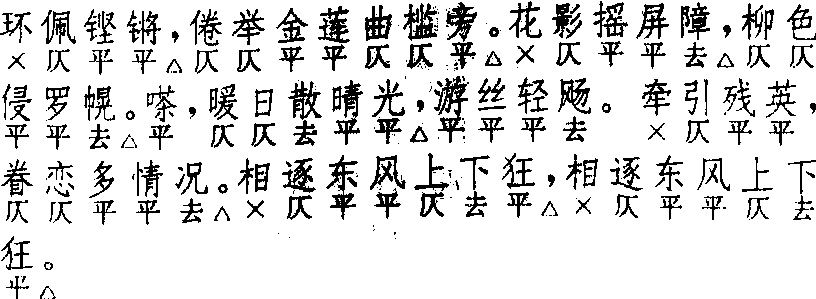 环佩铿锵，倦举金莲曲槛旁。花影摇屏障，柳色
×仄平平△仄仄平平仄仄平△×仄平平去△仄仄
侵罗幌。嗏，暖日散晴光，游丝轻飏。牵引残英，
平平去△平仄仄去平平△平平平去×仄平平
眷恋多情况。相逐东风上下狂，相逐东风上下
仄仄平平去△×仄平平仄去平△×仄平平仄去
狂。
平△